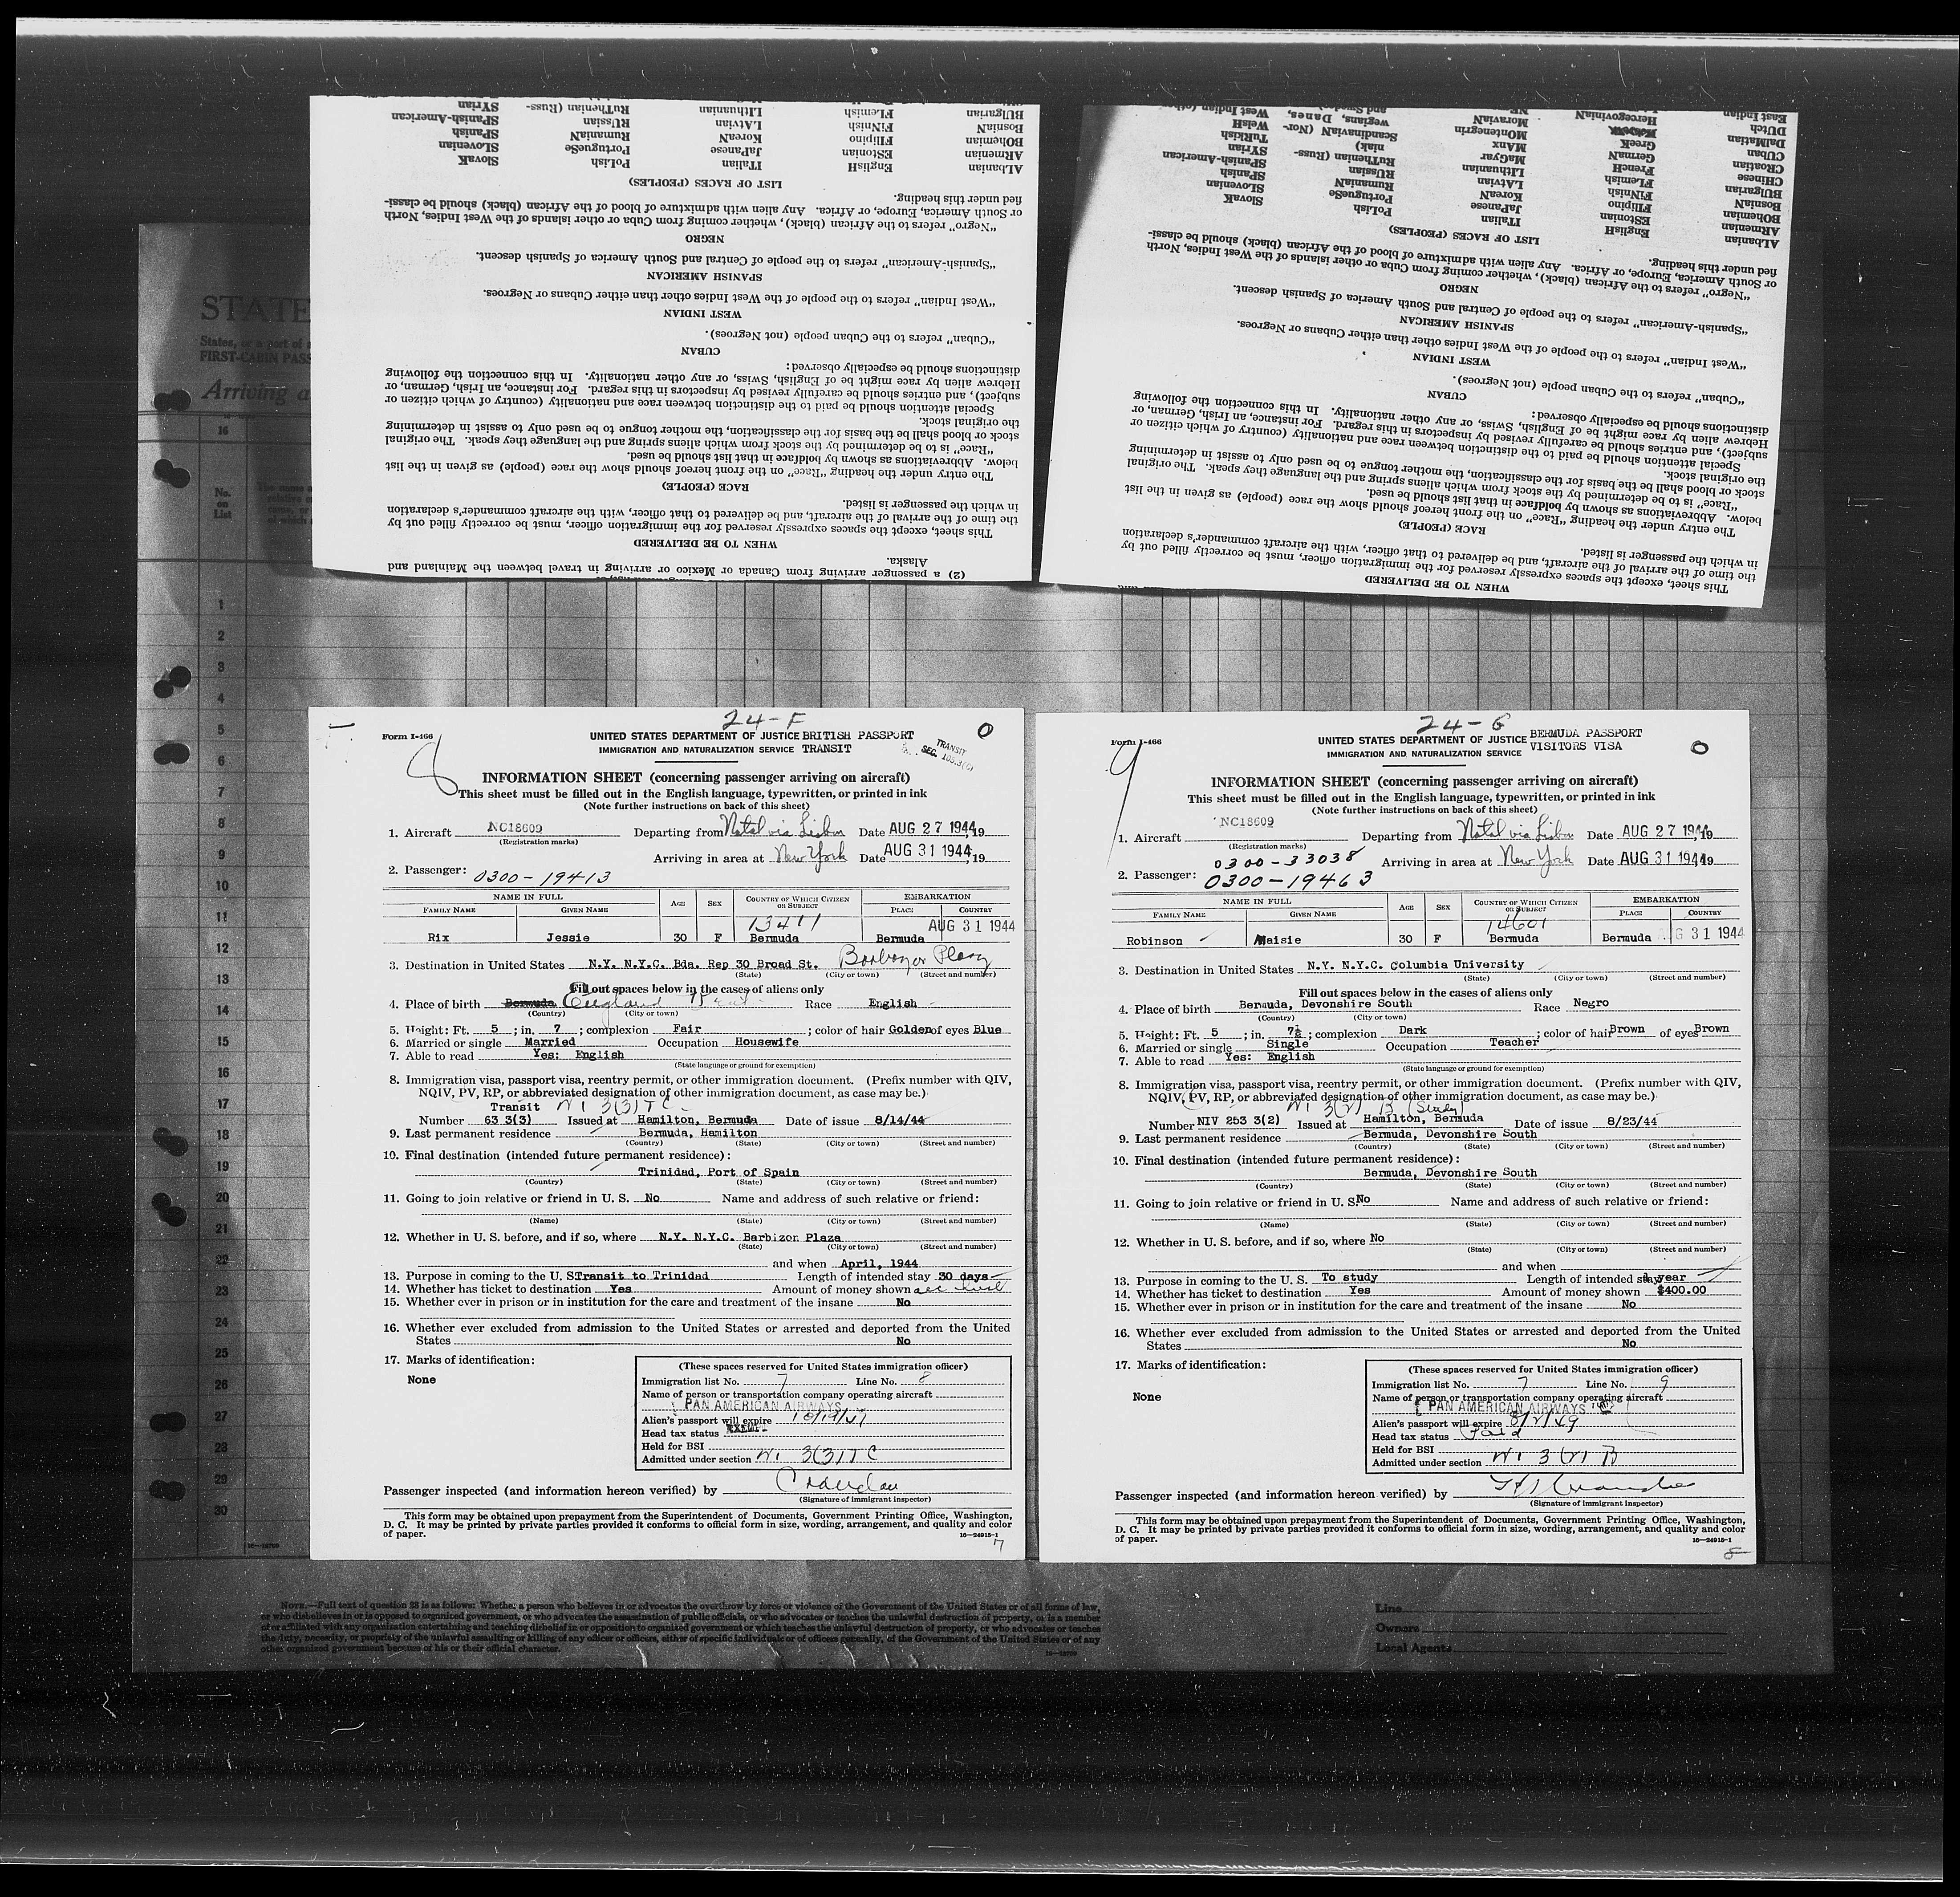 SYrian
RuThenian (Russ-
LIthuanian
FLemish
BUlgarian
SPanish-American
RUssian
LAtvian
FiNnish
BosniaN
SPanish
RumaniaN
KoreaN
Filipino
BOhemian
SLOvenian
PortugueSe
JaPanese
EStonian
ARmenian
SlovaK
PoLish
ITalian
EnglisH
ALbanian
LIST OF RACES (PEOPLES)
"Negro" refers to the African (black), whether coming from Cuba or other islands of the West Indies, North
or South America, Europe, or Africa. Any alien with admixture of blood of the African (black) should be classi-
fied under this heading.
NEGRO
"Spanish-American" refers to the people of Central and South America of Spanish descent.
SPANISH AMERICAN
"West Indian" refers to the people of the West Indies other than either Cubans or Negroes.
WEST INDIAN
"Cuban" refers to the Cuban people (not Negroes).
CUBAN
Special attention should be paid to the distinction between race and nationality (country of which citizen or
subject), and entries should be carefully revised by inspectors in this regard. For instance, an Irish, German, or
Hebrew alien by race might be of English, Swiss, or any other nationality. In this connection the following
distinctions should be especially observed:
"Race" is to be determined by the stock from which aliens spring and the language they speak. The original
stock or blood shall be the basis for the classification, the mother tongue to be used only to assist in determining
the original stock.
The entry under the heading "Race" on the front hereof should show the race (people) as given in the list
below. Abbreviations as shown by boldface in that list should be used.
RACE (PEOPLE)
This sheet, except the spaces expressly reserved for the immigration officer, must be correctly filled out by
the time of the arrival of the aircraft, and be delivered to that officer, with the aircraft commander's declaration
in which the passenger is listed.
WHEN TO BE DELIVERED
(2) a passenger arriving from Canada or Mexico or arriving in travel between the Mainland and
Alaska.
STATE
States, or a part of
FIRST-CABIN PASS
Arriving a
No. on List
24-F
Form I-466
8
UNITED STATES DEPARTMENT OF JUSTICE BRITISH PASSPORT
IMMIGRATION AND NATURALIZATION SERVICE TRANSIT
TRANSIT
INFORMATION SHEET (concerning passenger arriving on aircraft)
This sheet must be filled out in the English language, typewritten, or printed in ink
(Note further instructions on back of this sheet)
1. Aircraft NC18609 Departing from Natal via Lisbon Date AUG 27 1944, 19
(Registration marks)
Arriving in area at New York Date AUG 31 1944, 19
2. Passenger: 0300-19413
NAME IN FULL AGE SEX COUNTRY OF WHICH CITIZEN OR SUBJECT EMBARKATION
FAMILY NAME GIVEN NAME PLACE COUNTRY
13411 AUG 31 1944
Rix Jessie 30 F Bermuda Bermuda
3. Destination in United States N.Y. N.Y.C. Bda. Rep 30 Broad St. Barbizon Plaza
(State) (City or town) (Street and number)
Fill out spaces below in the cases of aliens only
4. Place of birth Bermuda England Race English
(Country) (City or town)
5. Height: Ft. 5; in. 7; complexion Fair; color of hair Golden of eyes Blue
6. Married or single Married Occupation Housewife
7. Able to read Yes: English
(State language or ground for exemption)
8. Immigration visa, passport visa, reentry permit, or other immigration document. (Prefix number with QIV,
NQIV, PV, RP, or abbreviated designation of other immigration document, as case may be.)
Transit 3(3) TC
Number 63 3(3) Issued at Hamilton, Bermuda Date of issue 8/14/44
9. Last permanent residence Bermuda, Hamilton
(Country) (State) (City or town) (Street and number)
10. Final destination (intended future permanent residence):
Trinidad, Port of Spain
(Country) (State) (City or town) (Street and number)
11. Going to join relative or friend in U. S. No Name and address of such relative or friend:
(Name) (State) (City or town) (Street and number)
12. Whether in U. S. before, and if so, where N.Y. N.Y.C. Barbizon Plaza
(State) (City or town) (Street and number)
and when April, 1944
13. Purpose in coming to the U. S. Transit to Trinidad Length of intended stay 30 days
14. Whether has ticket to destination Yes Amount of money shown
15. Whether ever in prison or in institution for the care and treatment of the insane No
16. Whether ever excluded from admission to the United States or arrested and deported from the United
States No
17. Marks of identification:
None
(These spaces reserved for United States immigration officer)
Immigration list No. 7 Line No. 8
Name of person or transportation company operating aircraft
PAN AMERICAN AIRWAYS
Alien's passport will expire
Head tax status EXEMPT
Held for BSI
Admitted under section 3(3) TC
Passenger inspected (and information hereon verified) by
(Signature of immigrant inspector)
This form may be obtained upon prepayment from the Superintendent of Documents, Government Printing Office, Washington,
D. C. It may be printed by private parties provided it conforms to official form in size, wording, arrangement, and quality and color
of paper.
16-24915-1
7
WHEN TO BE DELIVERED
This sheet, except the spaces expressly reserved for the immigration officer, must be correctly filled out by
the time of the arrival of the aircraft, and be delivered to that officer, with the aircraft commander's declaration
in which the passenger is listed.
RACE (PEOPLE)
The entry under the heading "Race" on the front hereof should show the race (people) as given in the list
below. Abbreviations as shown by boldface in that list should be used.
"Race" is to be determined by the stock from which aliens spring and the language they speak. The original
stock or blood shall be the basis for the classification, the mother tongue to be used only to assist in determining
the original stock.
Special attention should be paid to the distinction between race and nationality (country of which citizen or
subject), and entries should be carefully revised by inspectors in this regard. For instance, an Irish, German, or
Hebrew alien by race might be of English, Swiss, or any other nationality. In this connection the following
distinctions should be especially observed:
CUBAN
"Cuban" refers to the Cuban people (not Negroes).
WEST INDIAN
"West Indian" refers to the people of the West Indies other than either Cubans or Negroes.
SPANISH AMERICAN
"Spanish-American" refers to the people of Central and South America of Spanish descent.
NEGRO
"Negro" refers to the African (black), whether coming from Cuba or other islands of the West Indies, North
or South America, Europe, or Africa. Any alien with admixture of blood of the African (black) should be classi-
fied under this heading.
LIST OF RACES (PEOPLES)
ALbanian
ARmenian
BOhemian
BosniaN
BUlgarian
CHInese
CRoatian
CUban
DalMatian
DUtch
East Indian
EnglisH
EStonian
Filipino
FiNnish
FLemish
FrencH
GermaN
GreeK
HercegovinaN
ITalian
JaPanese
KoreaN
LAtvian
LIthuanian
MaGyar
MAnx
MOntenegrin
MoraviaN
PoLish
PortugueSe
RumaniaN
RUssian
RuThenian (Russ-
niak)
Scandinavian (Nor-
wegians, Danes,
SlovaK
SLOvenian
SPanish
SPanish-American
SYrian
TurKish
WelsH
West Indian
24-G
Form I-466
9
UNITED STATES DEPARTMENT OF JUSTICE BERMUDA PASSPORT
IMMIGRATION AND NATURALIZATION SERVICE VISITORS VISA
INFORMATION SHEET (concerning passenger arriving on aircraft)
This sheet must be filled out in the English language, typewritten, or printed in ink
(Note further instructions on back of this sheet)
1. Aircraft NC18609 Departing from Natal via Lisbon Date AUG 27 1944, 19
(Registration marks)
0300-33038 Arriving in area at New York Date AUG 31 1944 19
2. Passenger: 0300-19463
NAME IN FULL AGE SEX COUNTRY OF WHICH CITIZEN OR SUBJECT EMBARKATION
FAMILY NAME GIVEN NAME PLACE COUNTRY
14601 G 31 1944
Robinson Maisie 30 F Bermuda Bermuda
3. Destination in United States N.Y. N.Y.C. Columbia University
(State) (City or town) (Street and number)
Fill out spaces below in the cases of aliens only
4. Place of birth Bermuda, Devonshire South Race Negro
(Country) (City or town)
5. Height: Ft. 5; in. 7½; complexion Dark; color of hair Brown of eyes Brown
6. Married or single Single Occupation Teacher
7. Able to read Yes: English
(State language or ground for exemption)
8. Immigration visa, passport visa, reentry permit, or other immigration document. (Prefix number with QIV,
NQIV, PV, RP, or abbreviated designation of other immigration document, as case may be.)
3(2) B (Study)
Number NIV 253 3(2) Issued at Hamilton, Bermuda Date of issue 8/23/44
9. Last permanent residence Bermuda, Devonshire South
(Country) (State) (City or town) (Street and number)
10. Final destination (intended future permanent residence):
Bermuda, Devonshire South
(Country) (State) (City or town) (Street and number)
11. Going to join relative or friend in U. S. No Name and address of such relative or friend:
(Name) (State) (City or town) (Street and number)
12. Whether in U. S. before, and if so, where No
(State) (City or town) (Street and number)
and when
13. Purpose in coming to the U. S. To study Length of intended stay 1 year
14. Whether has ticket to destination Yes Amount of money shown $400.00
15. Whether ever in prison or in institution for the care and treatment of the insane No
16. Whether ever excluded from admission to the United States or arrested and deported from the United
States No
17. Marks of identification:
None
(These spaces reserved for United States immigration officer)
Immigration list No. 7 Line No. 9
Name of person or transportation company operating aircraft
PAN AMERICAN AIRWAYS
Alien's passport will expire 8/2/49
Head tax status Paid
Held for BSI
Admitted under section 3(2) B
Passenger inspected (and information hereon verified) by
(Signature of immigrant inspector)
This form may be obtained upon prepayment from the Superintendent of Documents, Government Printing Office, Washington,
D. C. It may be printed by private parties provided it conforms to official form in size, wording, arrangement, and quality and color
of paper.
16-24915-1
8
16
1
2
3
4
5
6
7
8
9
10
11
12
13
14
15
16
17
18
19
20
21
22
23
24
25
26
27
28
29
30
NOTE.—Full text of question 28 is as follows: Whether a person who believes in or advocates the overthrow by force or violence of the Government of the United States or of all forms of law,
or who disbelieves in or is opposed to organized government, or who advocates the assassination of public officials, or who advocates or teaches the unlawful destruction of property, or is a member
of or affiliated with any organization entertaining and teaching disbelief in or opposition to organized government or which teaches the unlawful destruction of property, or who advocates or teaches
the duty, necessity, or propriety of the unlawful assaulting or killing of any officer or officers, either of specific individuals or of officers generally, of the Government of the United States or of any
other organized government because of his or their official character.
Line
Owners
Local Agents